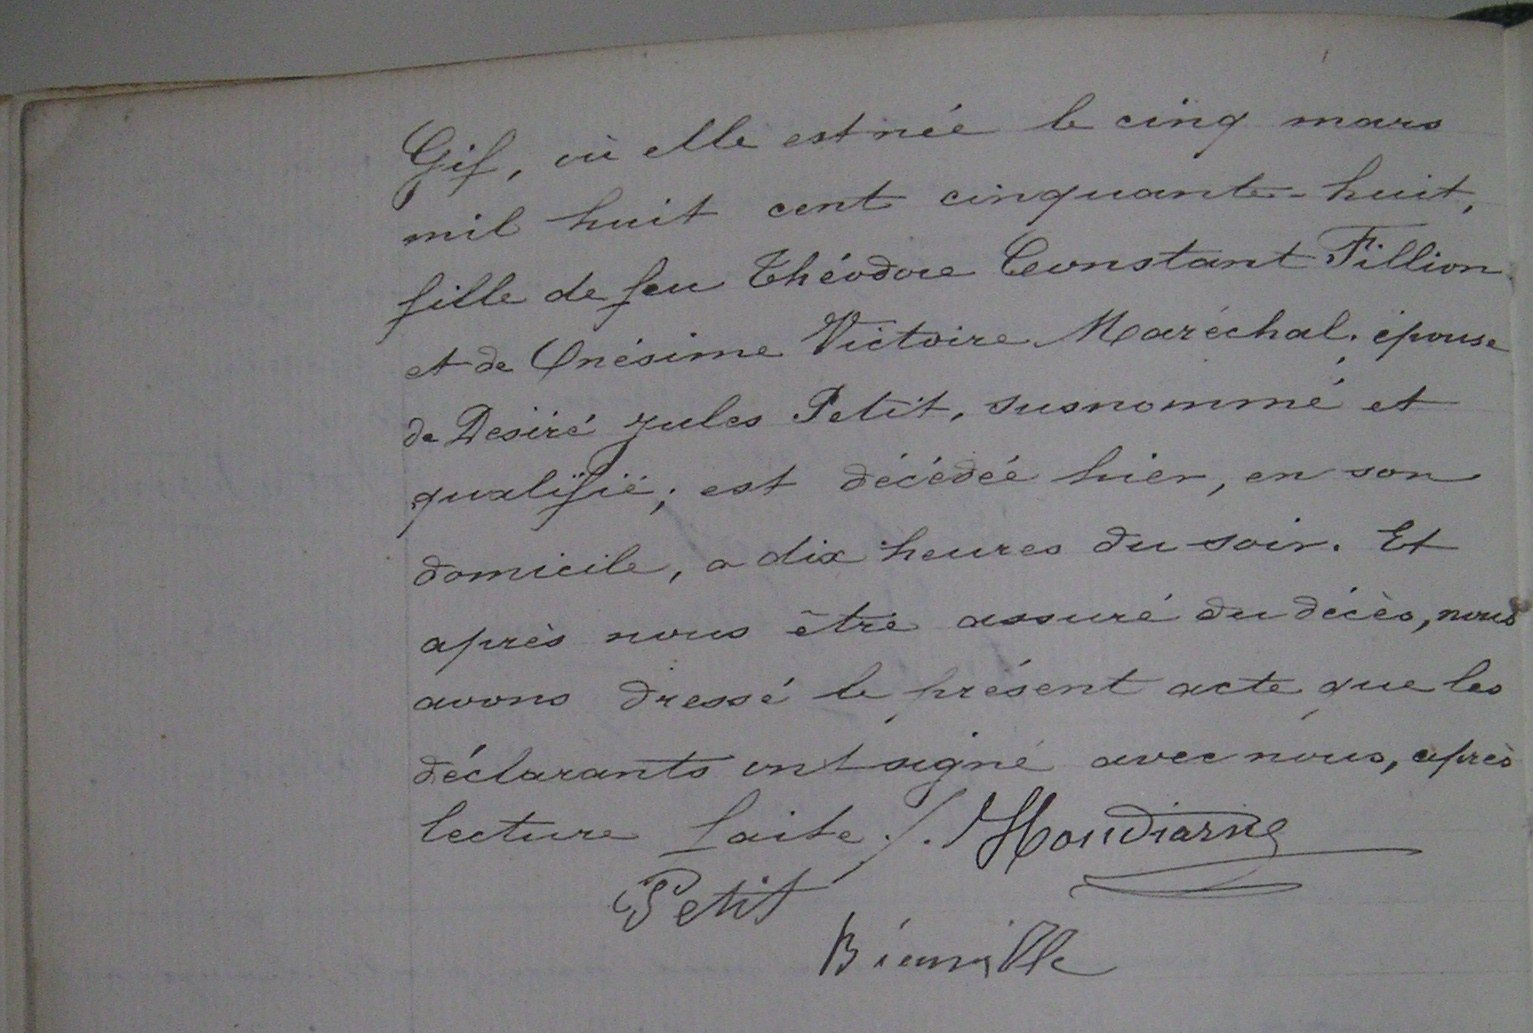 Gif, où elle est née le cinq mars
mil huit cent cinquante-huit,
fille de feu Théodore Constant Fillion
et de Onésime Victoire Maréchal, épouse
de Désiré Jules Petit, susnommé et
qualifié, est décédée hier, en son
domicile, a dix heures du soir. Et
après nous être assuré du décès, nous
avons dressé le présent acte que les
déclarants ont signé avec nous, après
lecture faite ./.
Petit